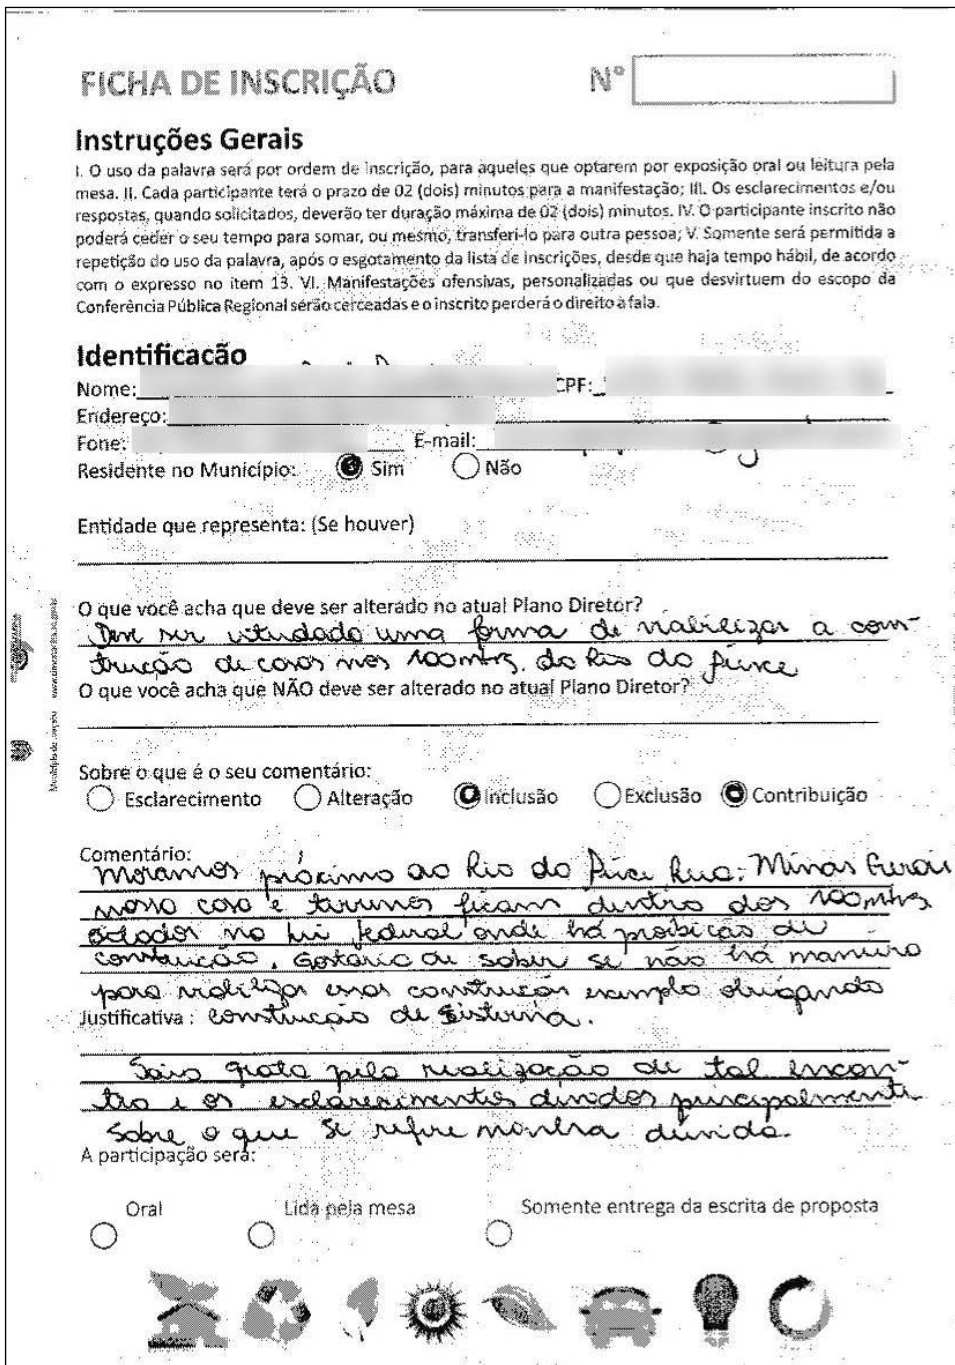 FICHA DE INSCRIÇÃO
Nº
Instruções Gerais
I. O uso da palavra será por ordem de inscrição, para aqueles que optarem por exposição oral ou leitura pela
mesa. II. Cada participante terá o prazo de 02 (dois) minutos para a manifestação; III. Os esclarecimentos e/ou
respostas, quando solicitados, deverão ter duração máxima de 02 (dois) minutos. IV. O participante inscrito não
poderá ceder o seu tempo para somar, ou mesmo, transferi-lo para outra pessoa; V. Somente será permitida a
repetição do uso da palavra, após o esgotamento da lista de inscrições, desde que haja tempo hábil, de acordo
com o expresso no item 13. VI. Manifestações ofensivas, personalizadas ou que desvirtuem do escopo da
Conferência Pública Regional serão cerceadas e o inscrito perderá o direito à fala.
Identificação
Nome: CPF:
Endereço:
Fone: E-mail:
Residente no Município: Sim Não
Entidade que representa: (Se houver)
O que você acha que deve ser alterado no atual Plano Diretor?
Deve ser estudado uma forma de viabilizar a cons-
trução de casas nos 100mtrs. do Rio do
O que você acha que NÃO deve ser alterado no atual Plano Diretor?
Sobre o que é o seu comentário:
Esclarecimento Alteração Inclusão Exclusão Contribuição
Comentário:
Moramos próximo ao Rio do Rua: Minas Gerais
nossa casa e terrenos ficam dentro dos 100mtrs
na lei federal onde há proibição de
construção. Gostaria de saber se não há maneira
para viabilizar essas construções exemplo obrigando
Justificativa : construção de Sisterna.
Saio grata pela realização de tal encon-
tro e os esclarecimentos principalmente
sobre o que se refere minha dúvida.
A participação será:
Oral Lida pela mesa Somente entrega da escrita de proposta